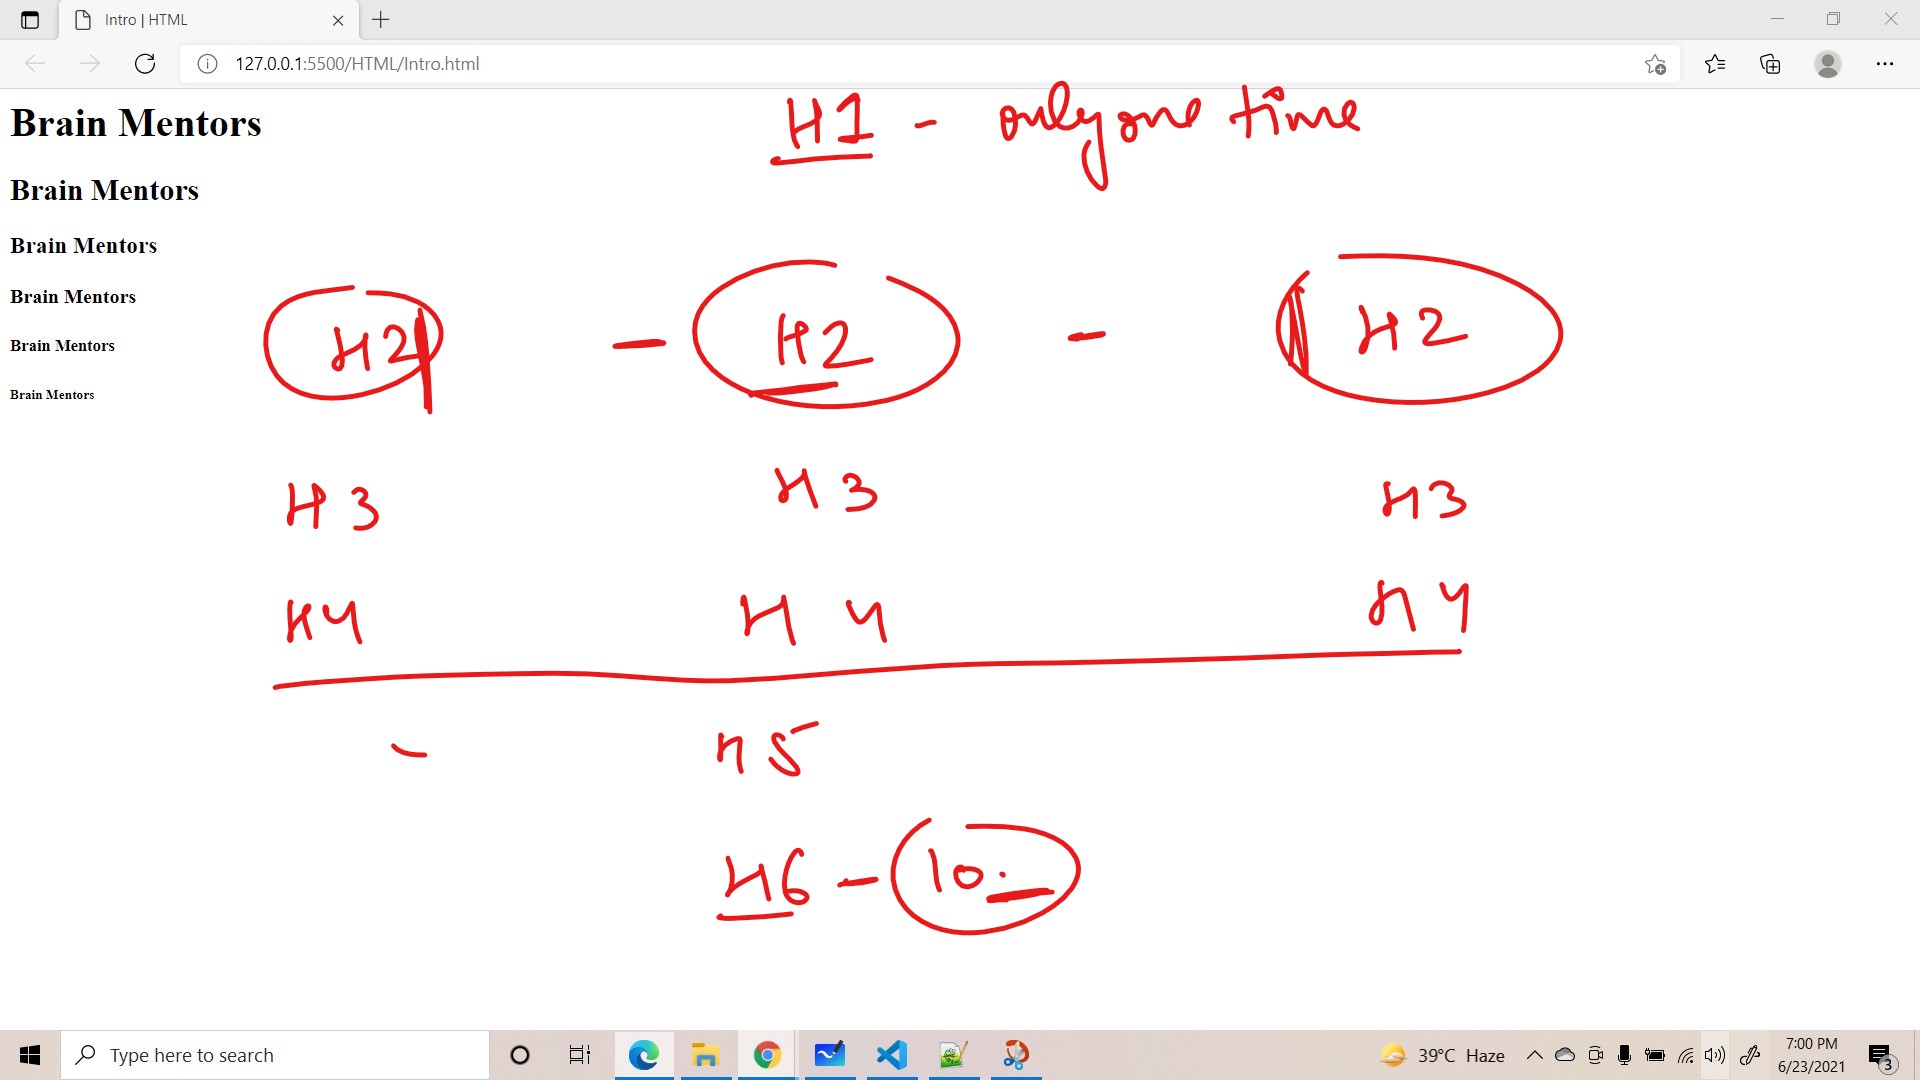 Intro | HTML
127.0.0.1:5500/HTML/Intro.html
Brain Mentors
H1 - only one time
Brain Mentors
Brain Mentors
Brain Mentors
H2 - H2 - H2
Brain Mentors
Brain Mentors
H3 H3 H3
H4 H4 H4
- H5
H6 - 10.
Type here to search
39°C Haze
7:00 PM
6/23/2021
3